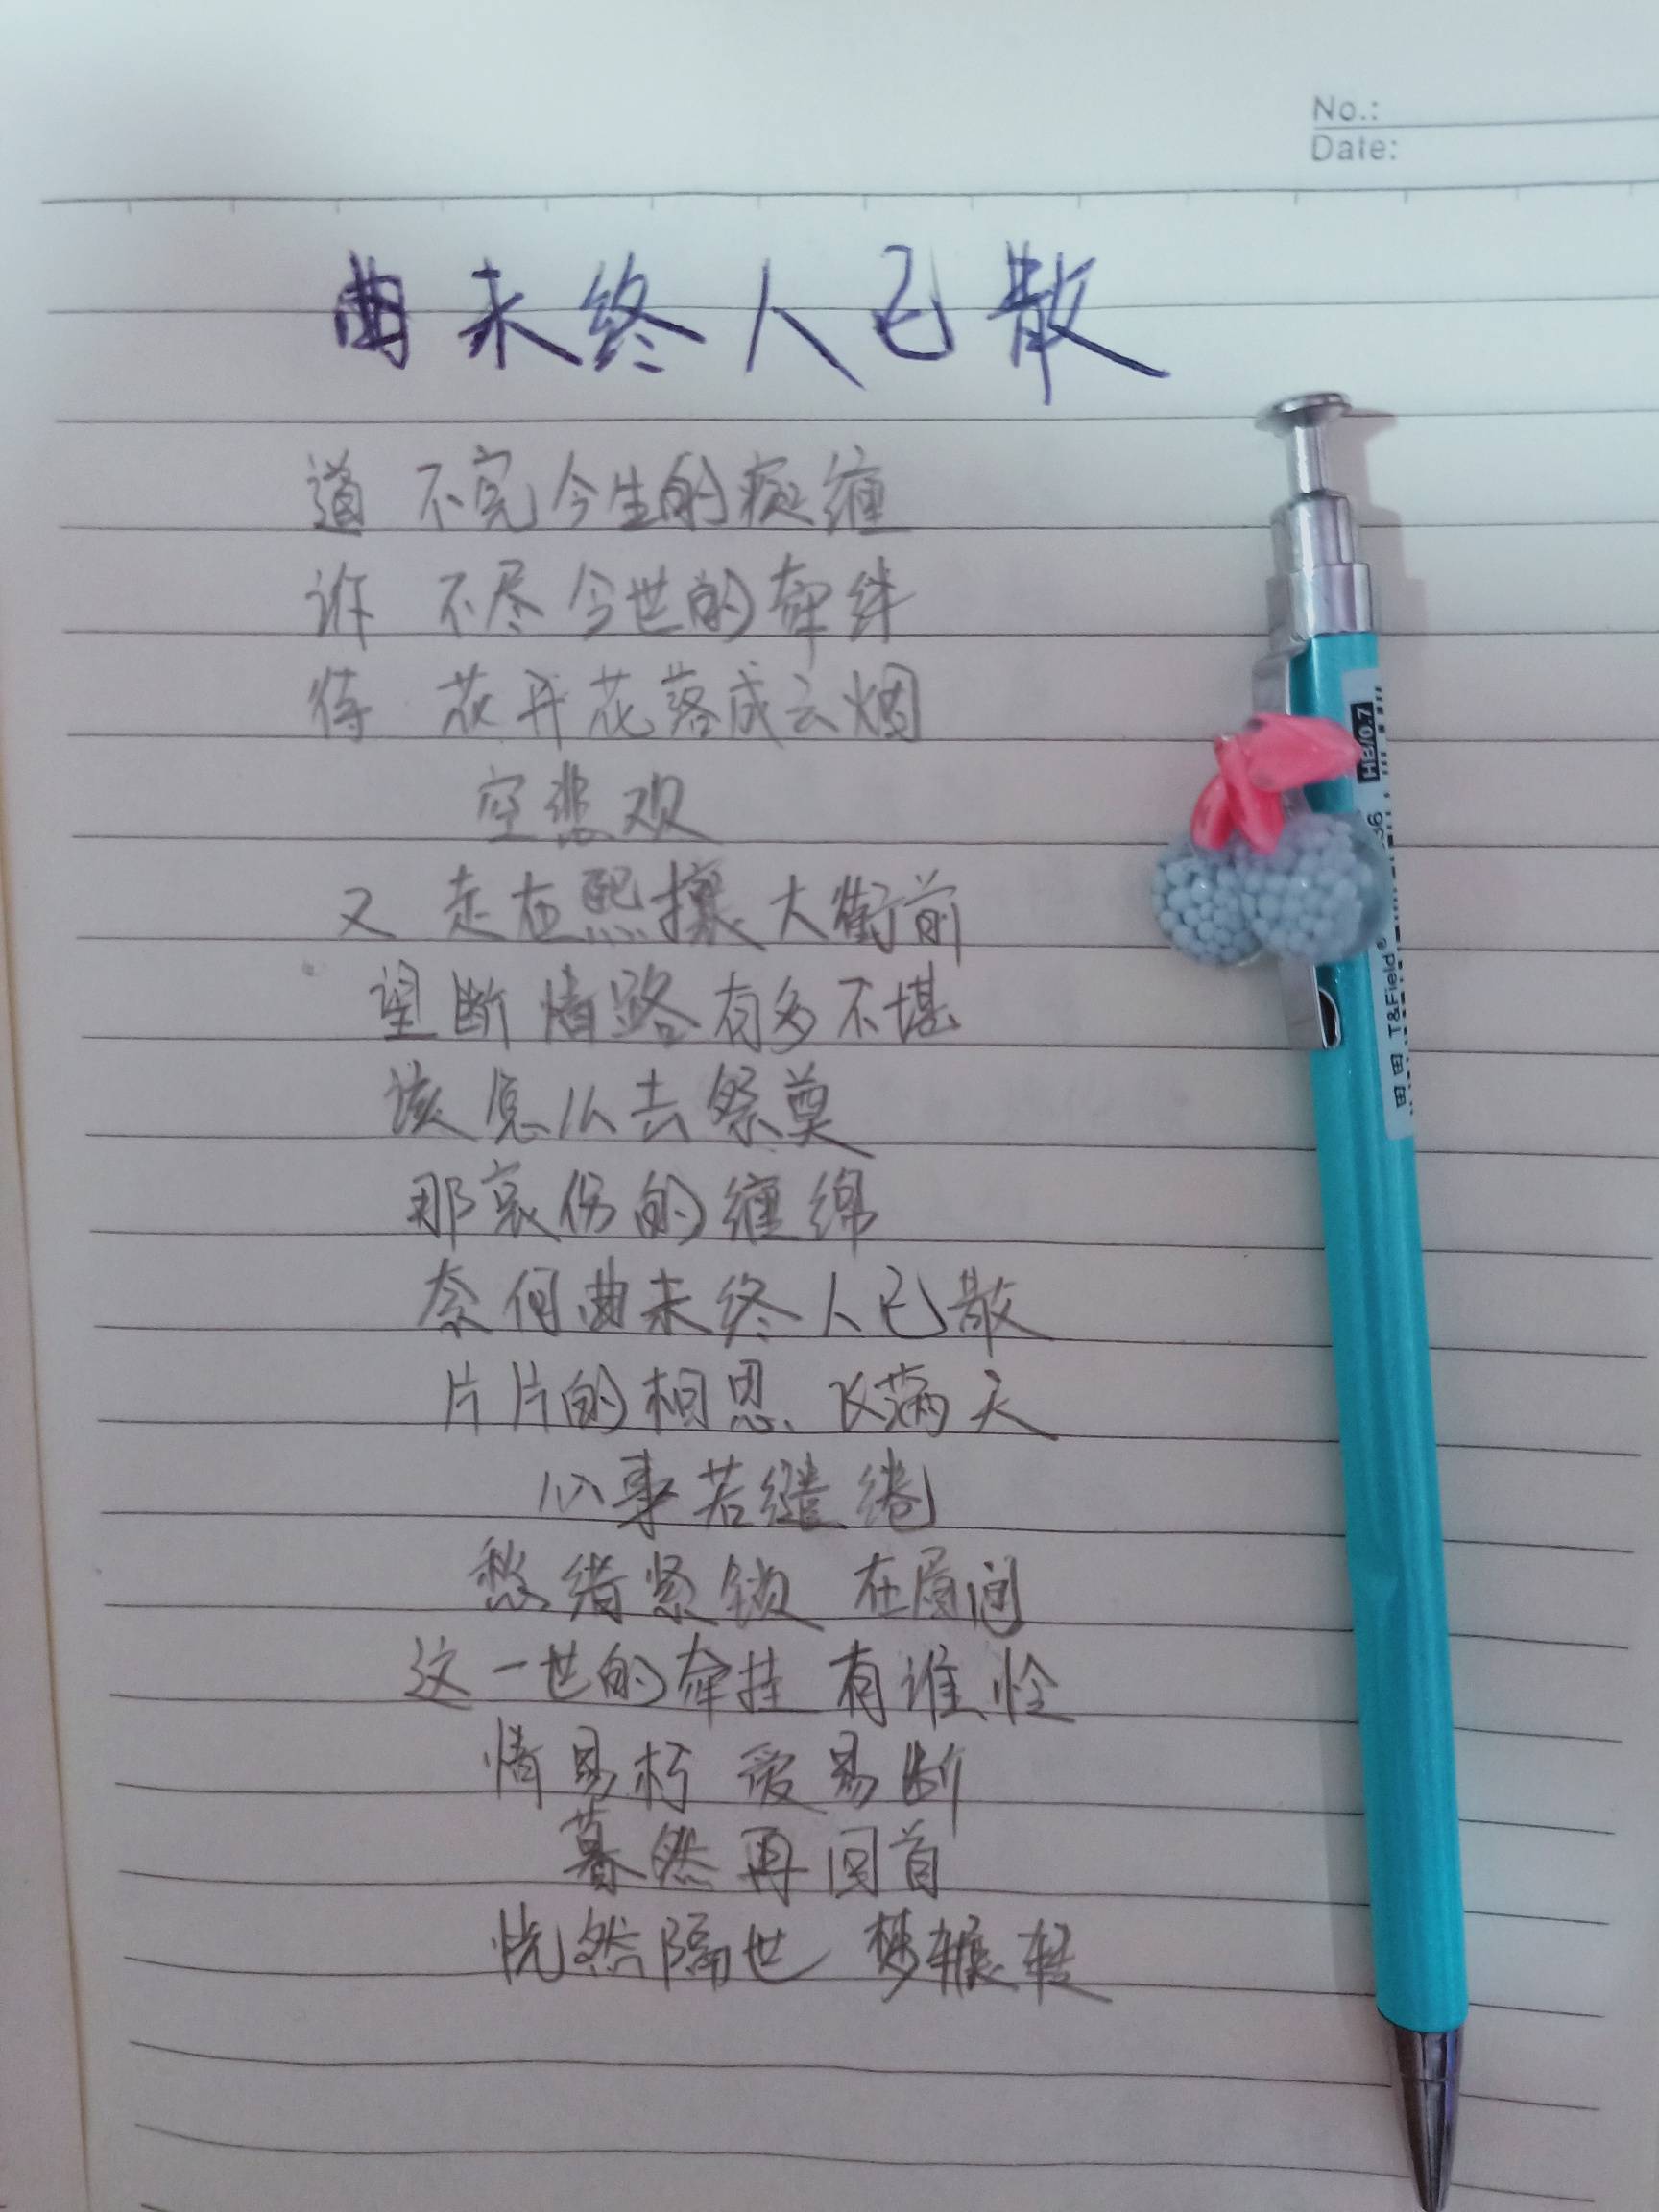 No.:
Date:
曲未终人已散
道 不完今生的痴缠
诉 不尽今世的牵绊
待 花开花落成云烟
空悲观
又 走在熙攘大街前
望断情路有多不堪
该怎么去祭奠
那哀伤的缠绵
奈何曲未终人已散
片片的相思飞满天
心事若缱绻
愁绪紧锁 在眉间
这一世的牵挂 有谁怜
情易朽 爱易断
暮然再回首
恍然隔世 梦辗转
HB/0.7
田田 T&Field®